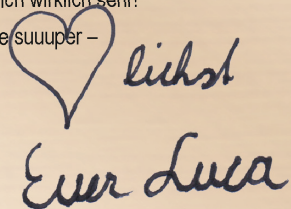 wirklich sehr!
suuuper –
lichst
Euer Luca